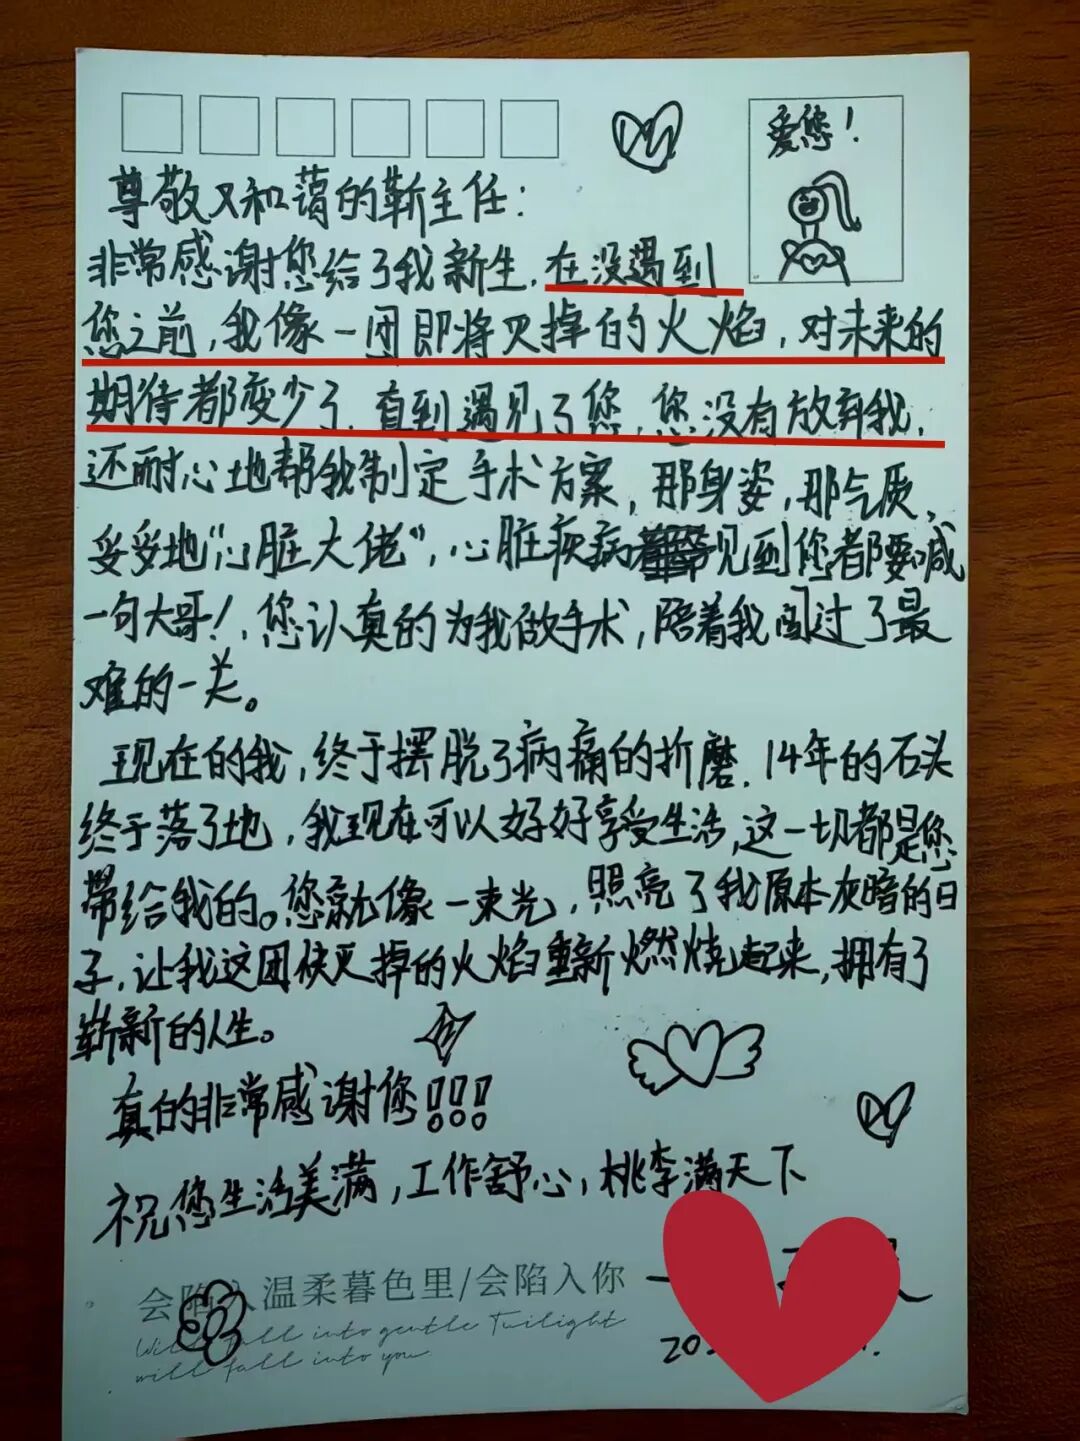 爱您！
尊敬又和蔼的靳主任：
非常感谢您给了我新生，在没遇到
您之前，我像一团即将灭掉的火焰，对未来的
期待都变少了，直到遇见了您，您没有放弃我，
还耐心地帮我制定手术方案，那身姿，那气质，
妥妥地“心脏大佬”，心脏疾病见到您都要喊
一句大哥！，您认真的为我做手术，陪着我闯过了最
难的一关。
现在的我，终于摆脱了病痛的折磨，14年的石头
终于落了地，我现在可以好好享受生活，这一切都是您
带给我的。您就像一束光，照亮了我原本灰暗的日
子，让我这团快灭掉的火焰重新燃烧起来，拥有了
崭新的人生。
真的非常感谢您!!!
祝您生活美满，工作舒心，桃李满天下
会陷入温柔暮色里/会陷入你
Will fall into gentle Twilight
will fall into you
20